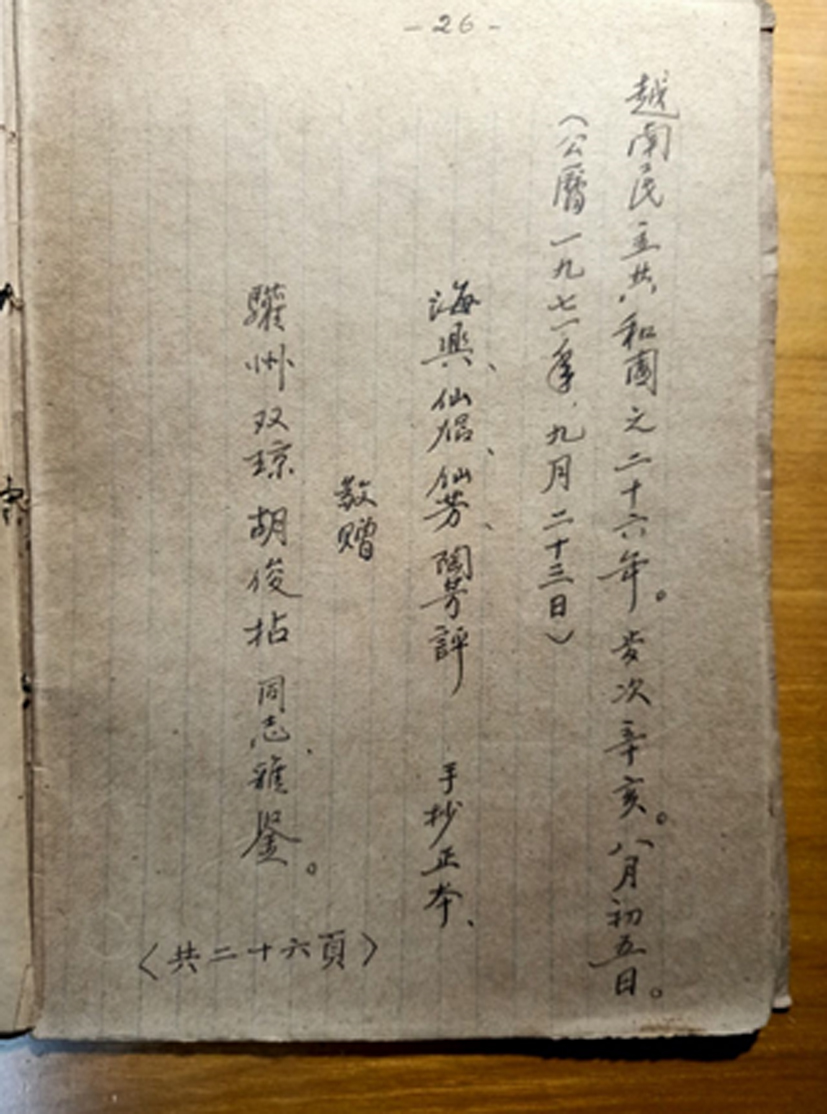 -26-
越南民主共和國之二十六年。歲次辛亥。八月初五日。
(公曆一九七一年、九月二十三日)
海興、仙侶、仙芳、陶芳評 手抄正本、
敬贈
驩州双琼胡俊拈同志、雅鑒。
〈共二十六頁〉